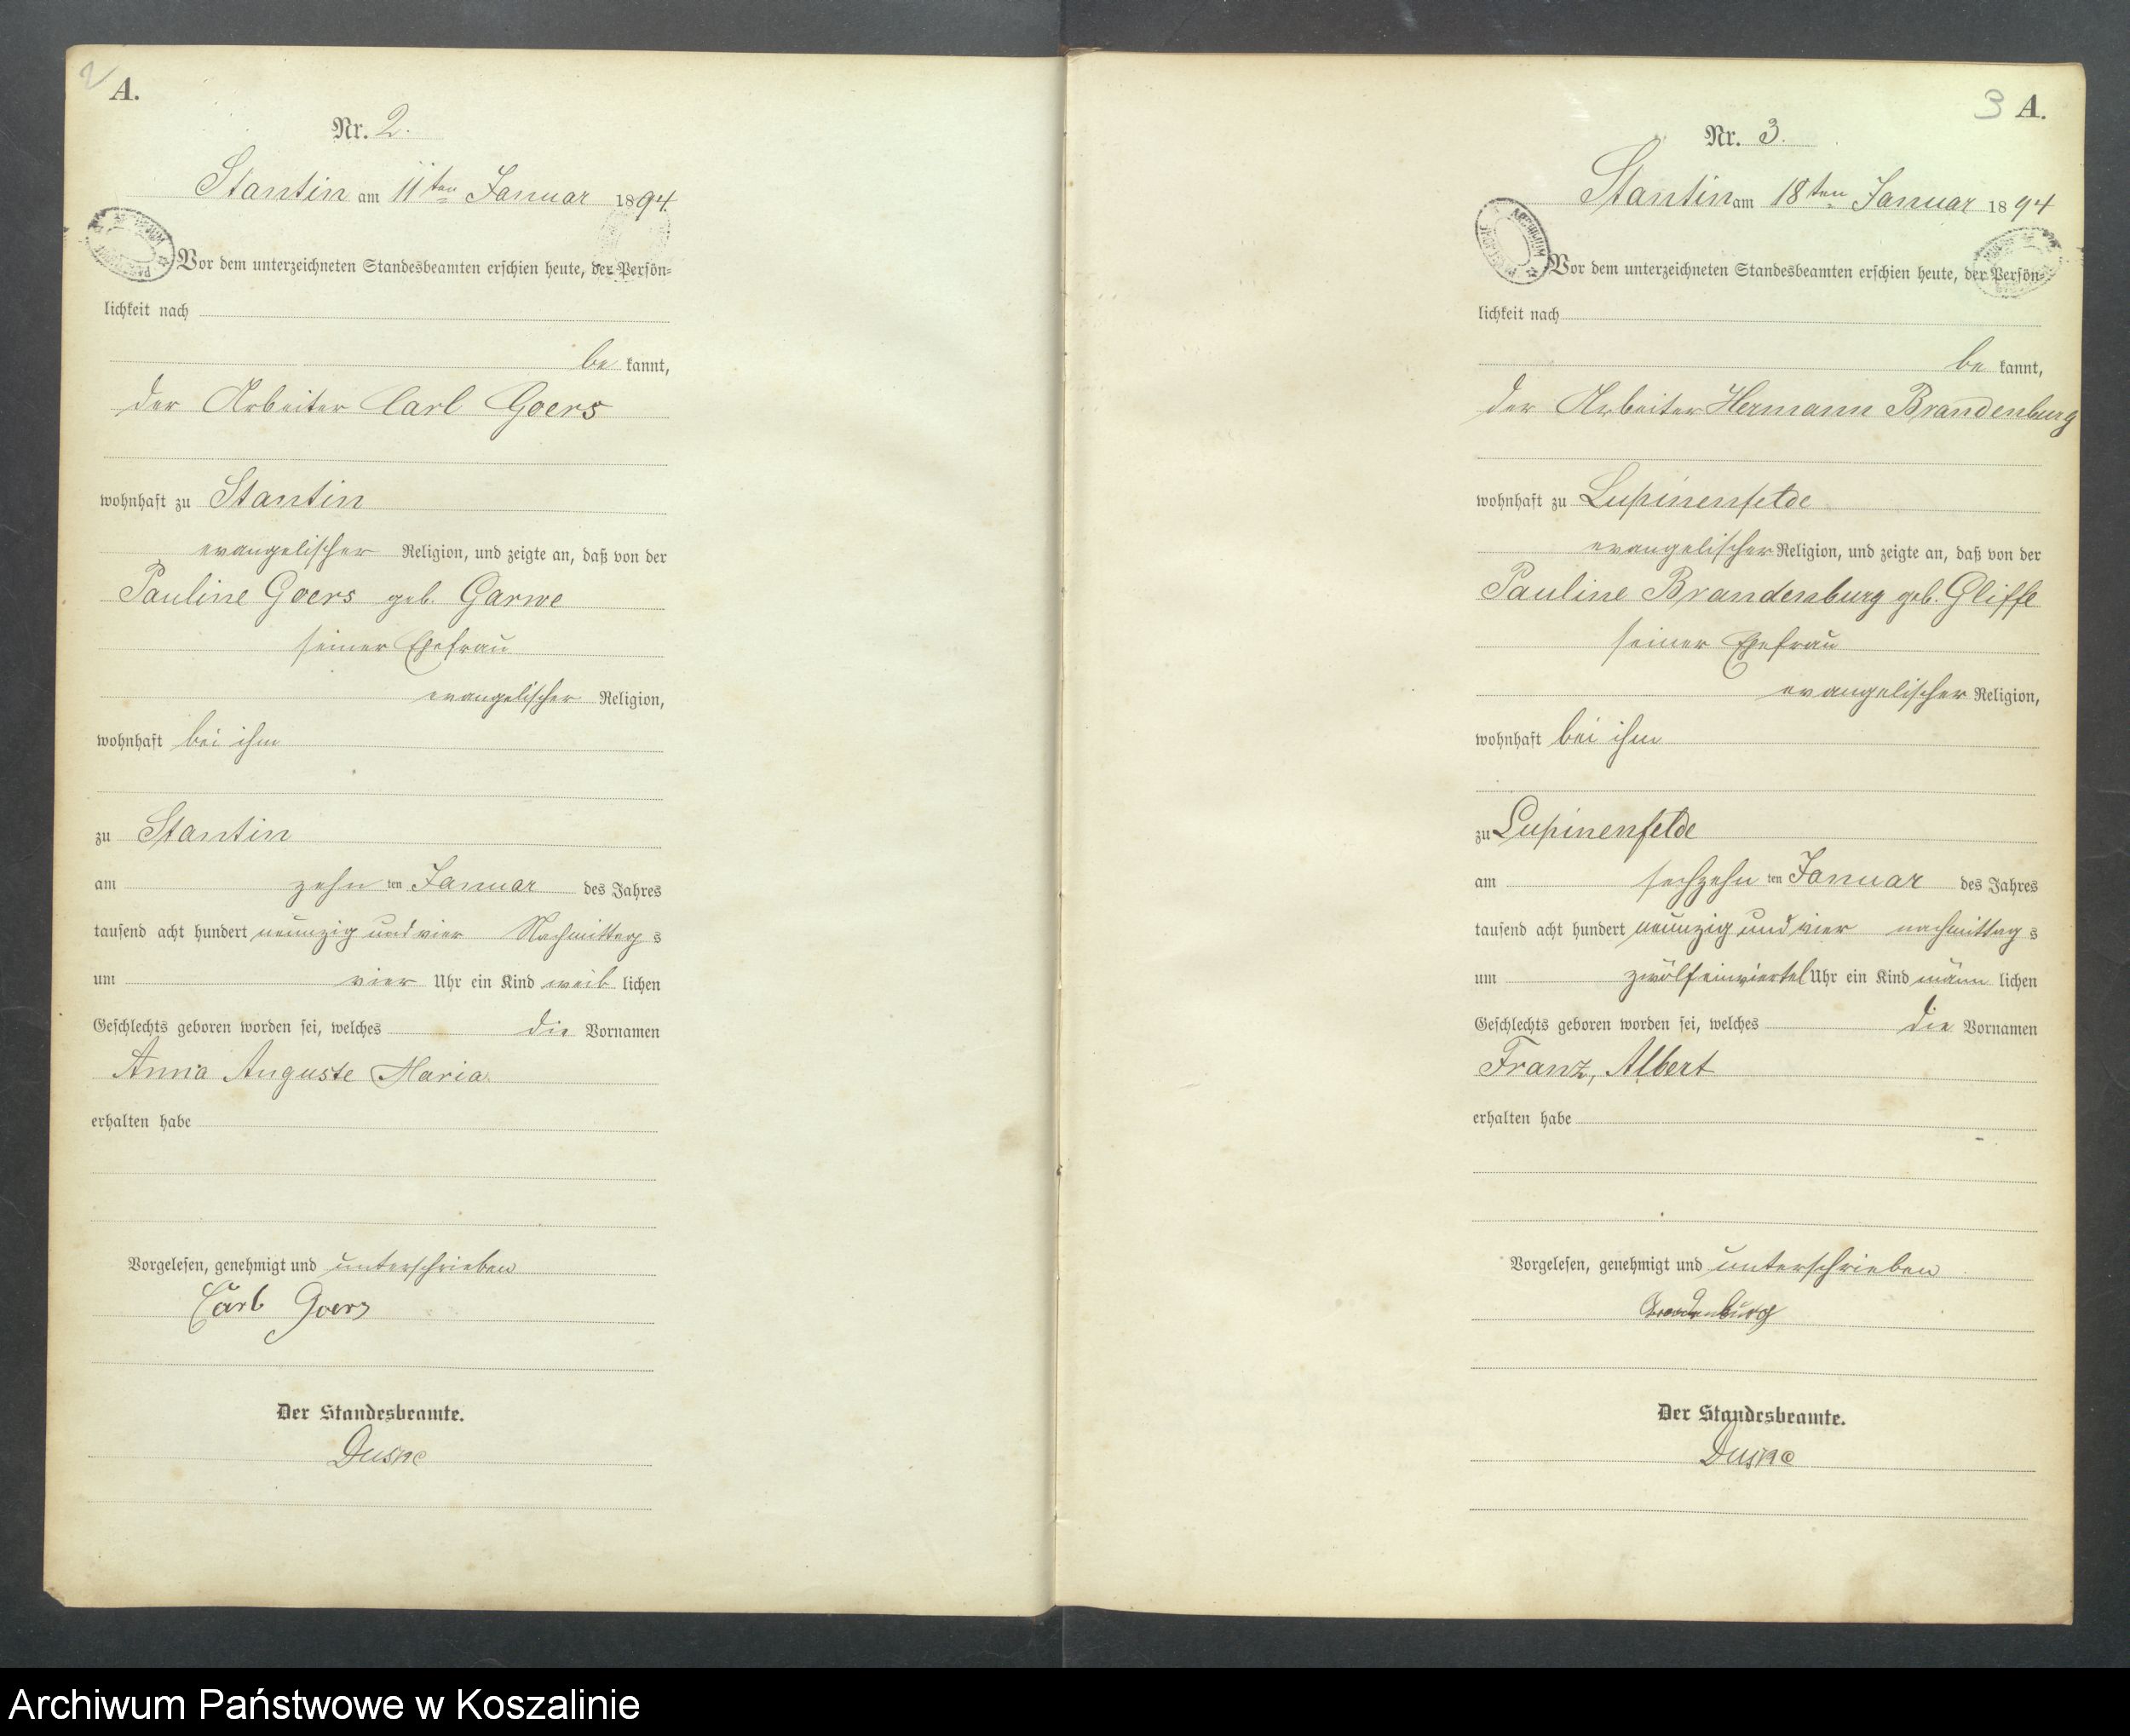 2
A.
Nr. 2.
Stantin am 11ten Januar 1894.
Vor dem unterzeichneten Standesbeamten erschien heute, der Persön=
lichkeit nach
be kannt,
der Arbeiter Carl Goers
wohnhaft zu Stantin
evangelischer Religion, und zeigte an, daß von der
Pauline Goers geb. Garwe
seiner Ehefrau
evangelischer Religion,
wohnhaft bei ihm
zu Stantin
am zehn ten Januar des Jahres
tausend acht hundert neunzig und vier Nachmittag s
um vier Uhr ein Kind weib lichen
Geschlechts geboren worden sei, welches die Vornamen
Anna Auguste Maria
erhalten habe
Vorgelesen, genehmigt und unterschrieben
Carl Goers
Der Standesbeamte.
Duske
3 A.
Nr. 3.
Stantin am 18ten Januar 1894
Vor dem unterzeichneten Standesbeamten erschien heute, der Persön=
lichkeit nach
be kannt,
der Arbeiter Hermann Brandenburg
wohnhaft zu Lupinenfelde
evangelischer Religion, und zeigte an, daß von der
Pauline Brandenburg geb. Gliffe
seiner Ehefrau
evangelischer Religion,
wohnhaft bei ihm
zu Lupinenfelde
am sechzehn ten Januar des Jahres
tausend acht hundert neunzig und vier nachmittag s
um zwölfeinviertel Uhr ein Kind männ lichen
Geschlechts geboren worden sei, welches die Vornamen
Franz, Albert
erhalten habe
Vorgelesen, genehmigt und unterschrieben
Brandenburg
Der Standesbeamte.
Duske
Archiwum Państwowe w Koszalinie